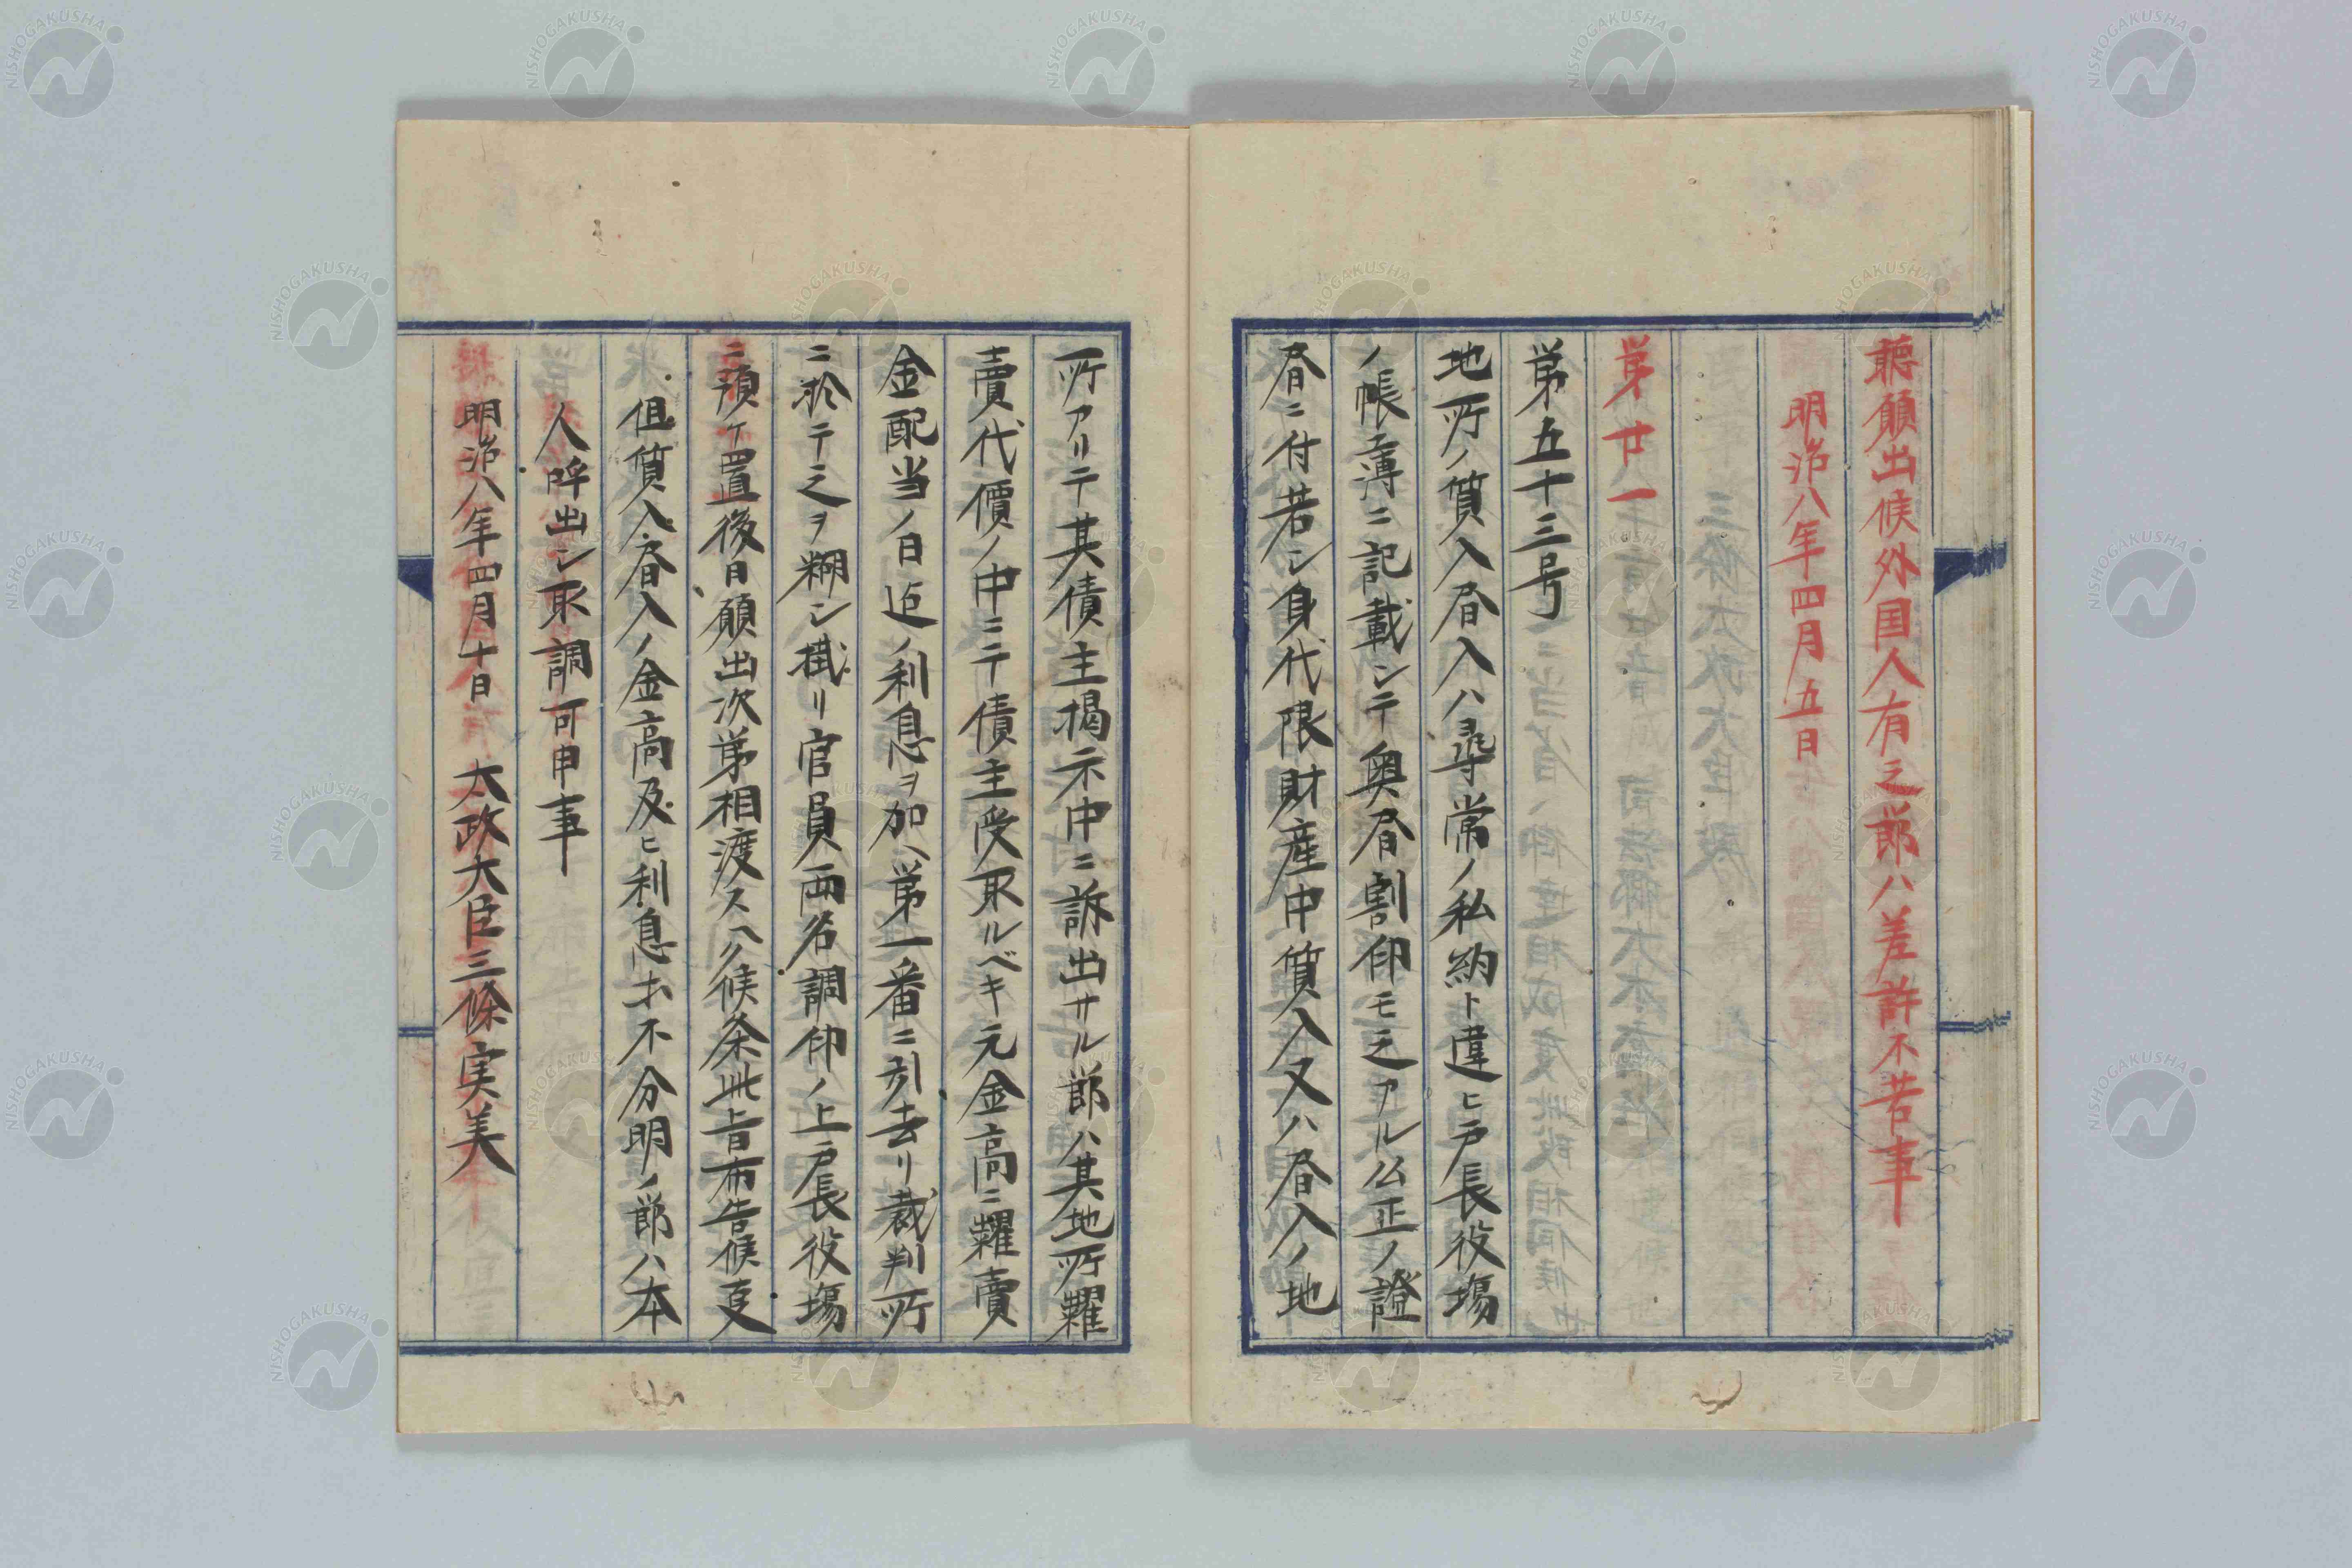 聴願出候外国人有之節ハ差許不苦事
明治八年四月五日
第廿一
第五十三号
地所ノ質入書入ハ尋常ノ私約ト違ヒ戸長役場
ノ帳簿ニ記載シテ奥書割印モ之アル公正ノ證
書ニ付若シ身代限財産中質入又ハ書入ノ地
所アリテ其債主掲示中ニ訴出サル節ハ其地所糶
賣代價ノ中ニテ債主受取ルベキ元金高ニ糶賣
金配当ノ日迄ノ利息ヲ加ヘ第一番ニ引去リ裁判所
ニ於テ之ヲ糊シ掛リ官員両名調印ノ上戸長役場
ニ預ケ置後日願出次第相渡スヘク候条此旨布告候更
但質入書入ノ金高及ヒ利息才不分明ノ節ハ本
人呼出シ取調可申事
明治八年四月十日 太政大臣三條実美
NISHOGAKUSHA